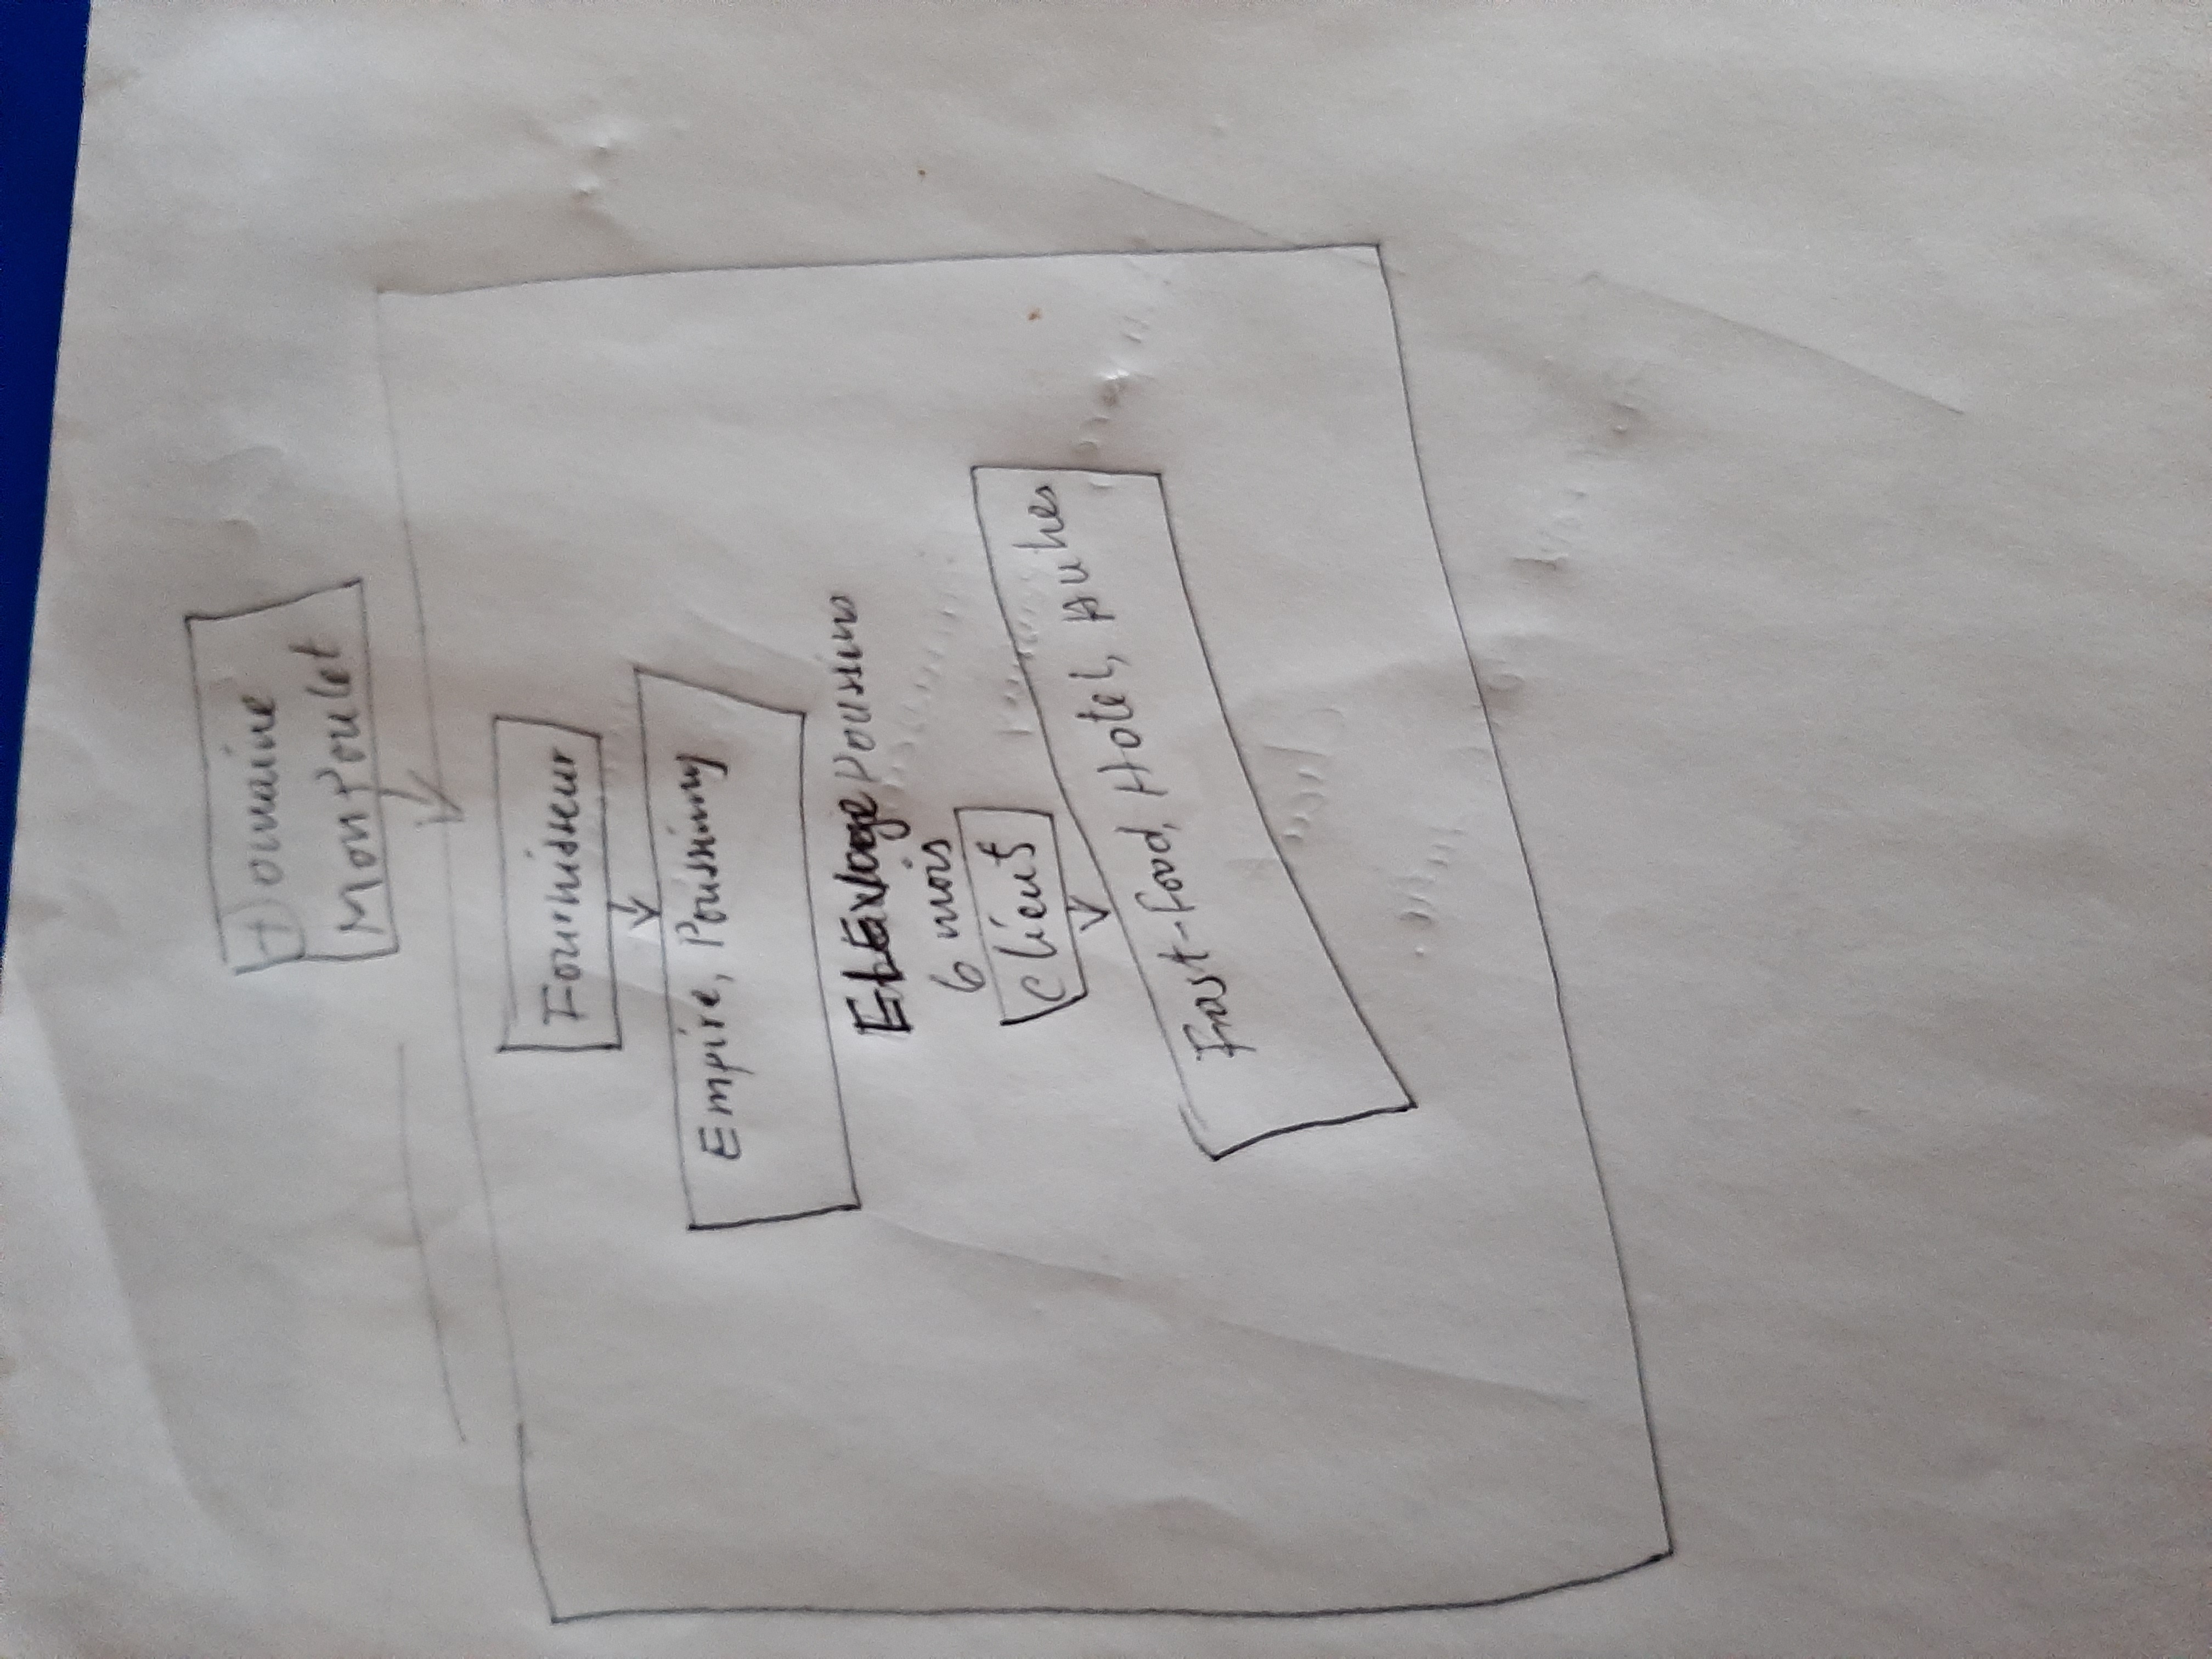 Domaine
MonPoulet
Fournisseur
Empire, Poussinny
ELEVage Poussins
6 mois
client
Fast-Food, Hotel, Autres